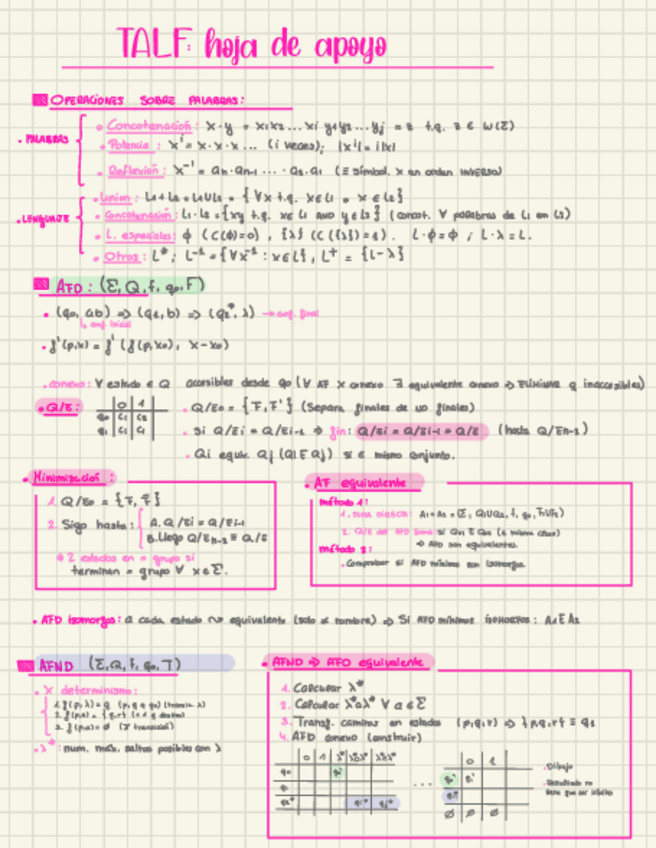 TALF: hoja de apoyo
OPERACIONES SOBRE PALABRAS:
• PALABRAS
Concatenación: x·y = x1x2...xi y1y2...yj = z t.q. z ∈ W(Σ)
Potencia: x^i = x·x·x... (i veces); |x^i| = i|x|
Reflexión: x⁻¹ = an·an-1 ... a2·a1 (símbol. x en orden INVERSO)
• LENGUAJE
Unión: L1+L2 = L1∪L2 = {∀x t.q. x∈L1 o x∈L2}
Concatenación: L1·L2 = {xy t.q. x∈L1 AND y∈L2} (concat. ∀ palabras de L1 en L2)
L. especiales: ϕ (C(ϕ)=0), {λ} (C({λ})=1). L·ϕ=ϕ ; L·λ=L.
Otros: L*; L⁻¹ = {∀x⁻¹ : x∈L}, L⁺ = {L-λ}
AFD: (Σ, Q, f, q0, F)
• (q0, ab) => (q1, b) => (q2*, λ) → conf. final
conf. inicial
• f'(p,x) = f'(f(p,x0), x-x0)
• conexo: ∀ estado ∈ Q accesibles desde q0 (∀ AF X conexo ∃ equivalente conexo => ELIMINAR q inaccesibles)
• Q/E:
0 1
q0 C1 C2
q1 C1 C1
• Q/E0 = {F, F'} (Separa finales de no finales)
• Si Q/Ei = Q/Ei-1 => fin: Q/Ei = Q/Ei-1 = Q/E (hasta Q/En-2)
• Qi equiv. Qj (Qi E Qj) si ∈ mismo conjunto.
Minimización:
1. Q/E0 = {F, F̄}
2. Sigo hasta:
A. Q/Ei = Q/Ei-1
B. Llego Q/En-2 ≡ Q/E
2 estados en = grupo si
terminan = grupo ∀ x∈Σ.
• AF equivalente
método 1:
1. suma directa: A1+A2 = (Σ, Q1∪Q2, f, q0, F1∪F2)
2. Q/E del AFD suma: si Q01 E Q02 (∈ misma clase)
=> AFD son equivalentes.
método 2:
• Comprobar si AFD mínimos son isomorfos.
• AFD isomorfos: a cada estado equivalente (solo ≠ nombre) => Si AFD mínimos isomorfos: A1 E A2
AFND (Σ, Q, f, q0, T)
• X determinismo:
• λ*: num. máx. saltos posibles con λ
• AFND => AFD equivalente
1. Calcular λ*
2. Calcular λ*aλ* ∀ a∈Σ
3. Transf. caminos en estados (p,q,r) => {p,q,r} ≡ q1
4. AFD conexo (construir)
0 1 λ*
q0
...
0 1
ø ø ø
• Dibujo
• Resultado no
tiene que ser